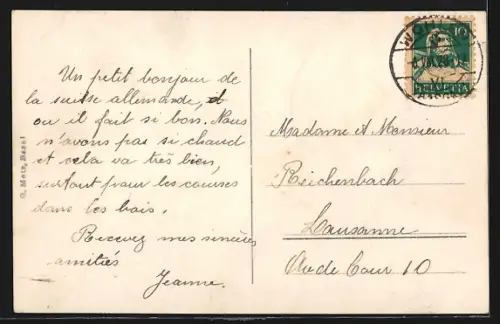 Un petit bonjour de
la suisse allemande,
ou il fait si bon. Nous
n'avons pas si chaud
et cela va très bien,
surtout pour les courses
dans les bois.
Recevez mes sincères
amitiés
Jeanne.
G. Metz, Basel
10
HELVETIA
Madame et Monsieur
Reichenbach
Lausanne
Av de Cour 10